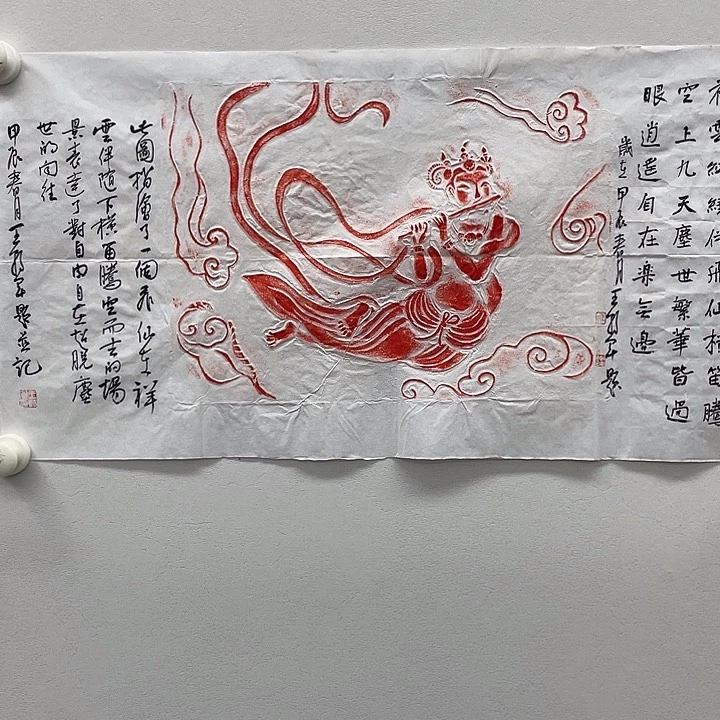 雲繚繞伴飛仙横笛騰
空上九天塵世繁華皆過
眼逍遥自在楽無邊
歲在甲辰春月王軍題
此圖描繪了一個飛仙在祥
雲伴随下横笛騰空而去的場
景表達了對自由自在超脱塵
世的向往
甲辰春月王軍題並記